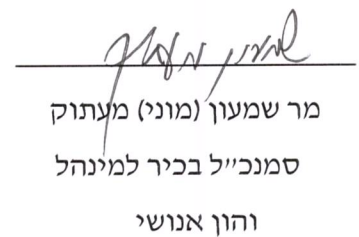 שמעון מעתוק
מר שמעון (מוני) מעתוק
סמנכ״ל בכיר למינהל
והון אנושי